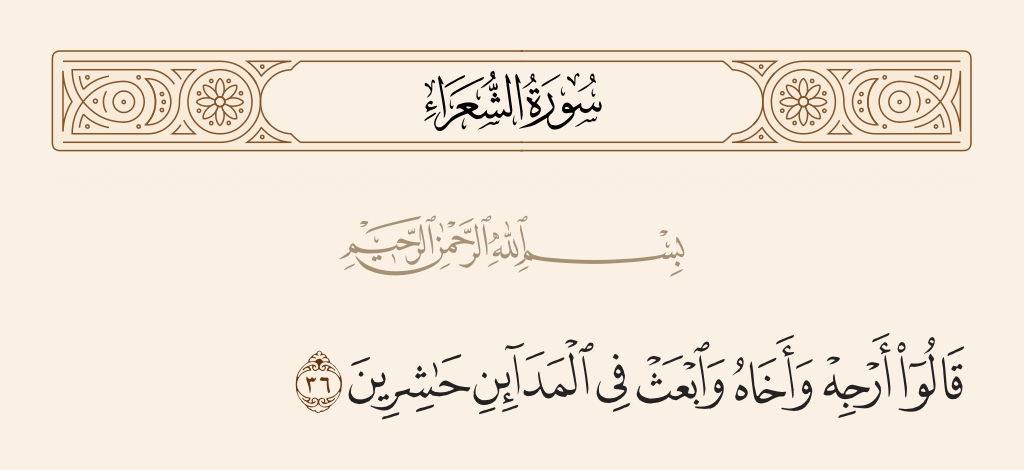 سُورَةُ الشُّعَرَاءِ
بِسْمِ ٱللَّهِ ٱلرَّحْمَٰنِ ٱلرَّحِيمِ
قَالُوٓا۟ أَرْجِهْ وَأَخَاهُ وَٱبْعَثْ فِى ٱلْمَدَآئِنِ حَٰشِرِينَ ٣٦